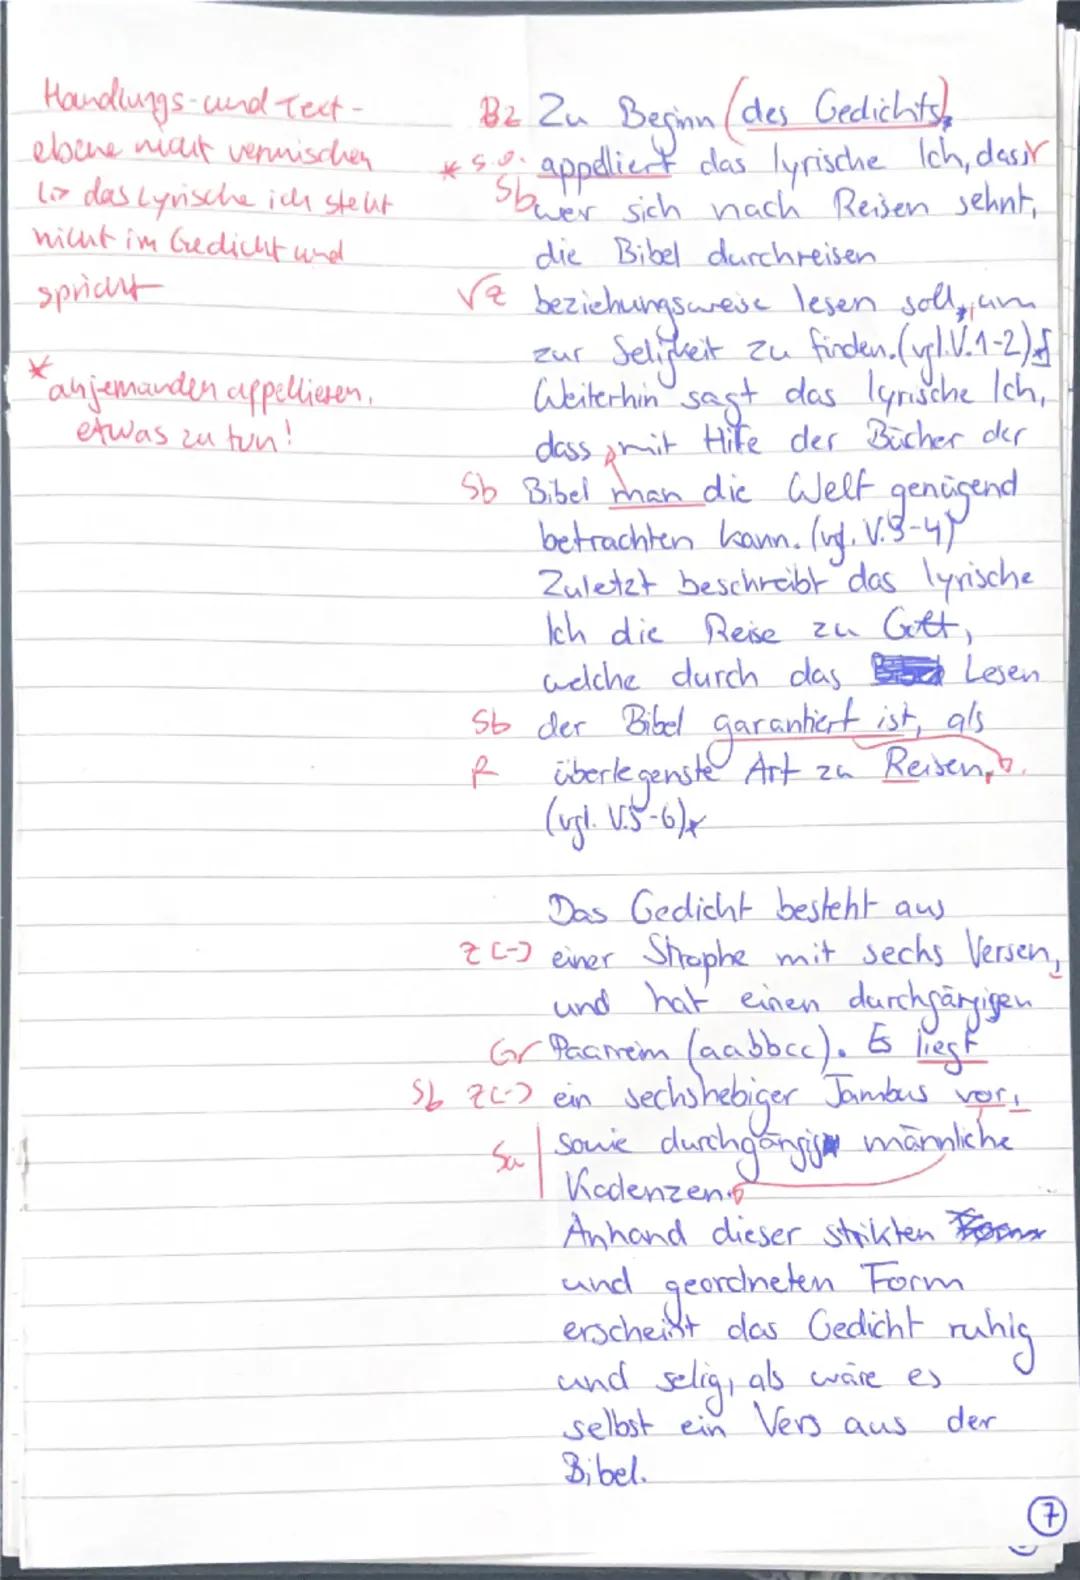 Handlungs- und Text-
ebene nicht vermischen
↳ das Lyrische ich steht
nicht im Gedicht und
spricht
* an jemanden appellieren,
etwas zu tun!
Bz Zu Beginn (des Gedichts)
* s.o. appelliert das lyrische Ich, dass
Sb wer sich nach Reisen sehnt,
die Bibel durchreisen
√z beziehungsweise lesen soll, um
zur Seligkeit zu finden. (vgl. V.1-2)
Weiterhin sagt das lyrische Ich,
dass mit Hilfe der Bücher der
Sb Bibel man die Welt genügend
betrachten kann. (vgl. V.3-4)
Zuletzt beschreibt das lyrische
Ich die Reise zu Gott,
welche durch das Lesen
Sb der Bibel garantiert ist, als
R überlegenste Art zu Reisen,
(vgl. V.5-6)
Das Gedicht besteht aus
Z (-) einer Strophe mit sechs Versen,
und hat einen durchgängigen
Gr Paarreim (aabbcc). Es liegt
Sb Z (-) ein sechshebiger Jambus vor,
Sa sowie durchgängig männliche
Kadenzen.
Anhand dieser strikten
und geordneten Form
erscheint das Gedicht ruhig
und selig, als wäre es
selbst ein Vers aus der
Bibel.
7